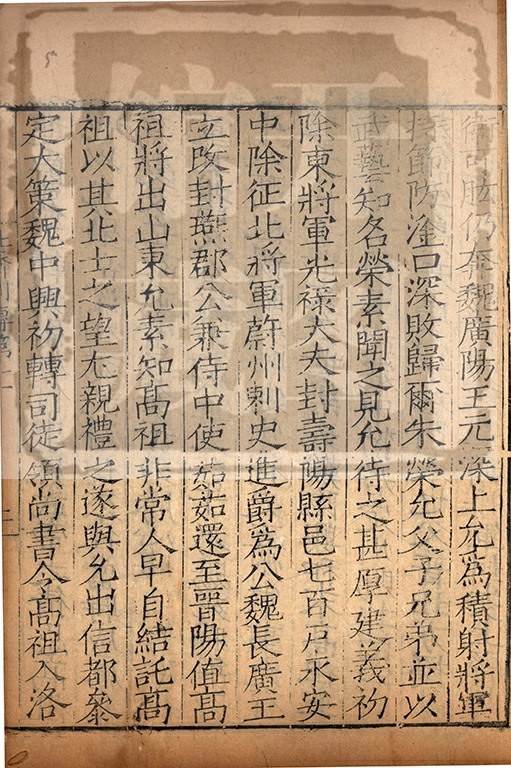 衛可肱仍奔魏廣陽王元深上允為積射將軍
持節防滏口深敗歸爾朱榮允父子兄弟並以
武藝知名榮素聞之見允待之甚厚建義初
除東將軍光祿大夫封壽陽縣邑七百戶永安
中除征北將軍蔚州刺史進爵為公魏長廣王
立改封燕郡公兼侍中使茹茹還至晉陽值高
祖將出山東允素知高祖非常人早自結託高
祖以其北士之望尤親禮之遂與允出信都叅
定大策魏中興初轉司徒領尚書令高祖入洛